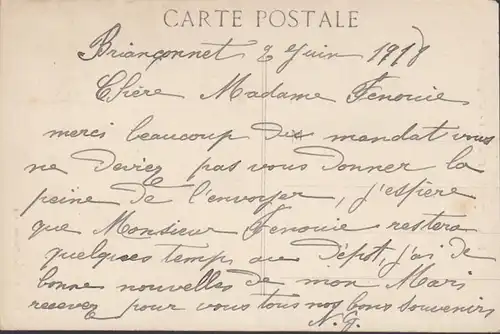 CARTE POSTALE
Briançonnet 2 Juin 1918
Chère Madame Fenouie
merci beaucoup du mandat vous
ne deviez pas vous donner la
peine de l'envoyer, j'espère
que Monsieur Fenouie restera
quelques temps au Dépot, j'ai de
bonne nouvelles de mon Mari
recevez pour vous tous nos bons souvenirs
N. G.